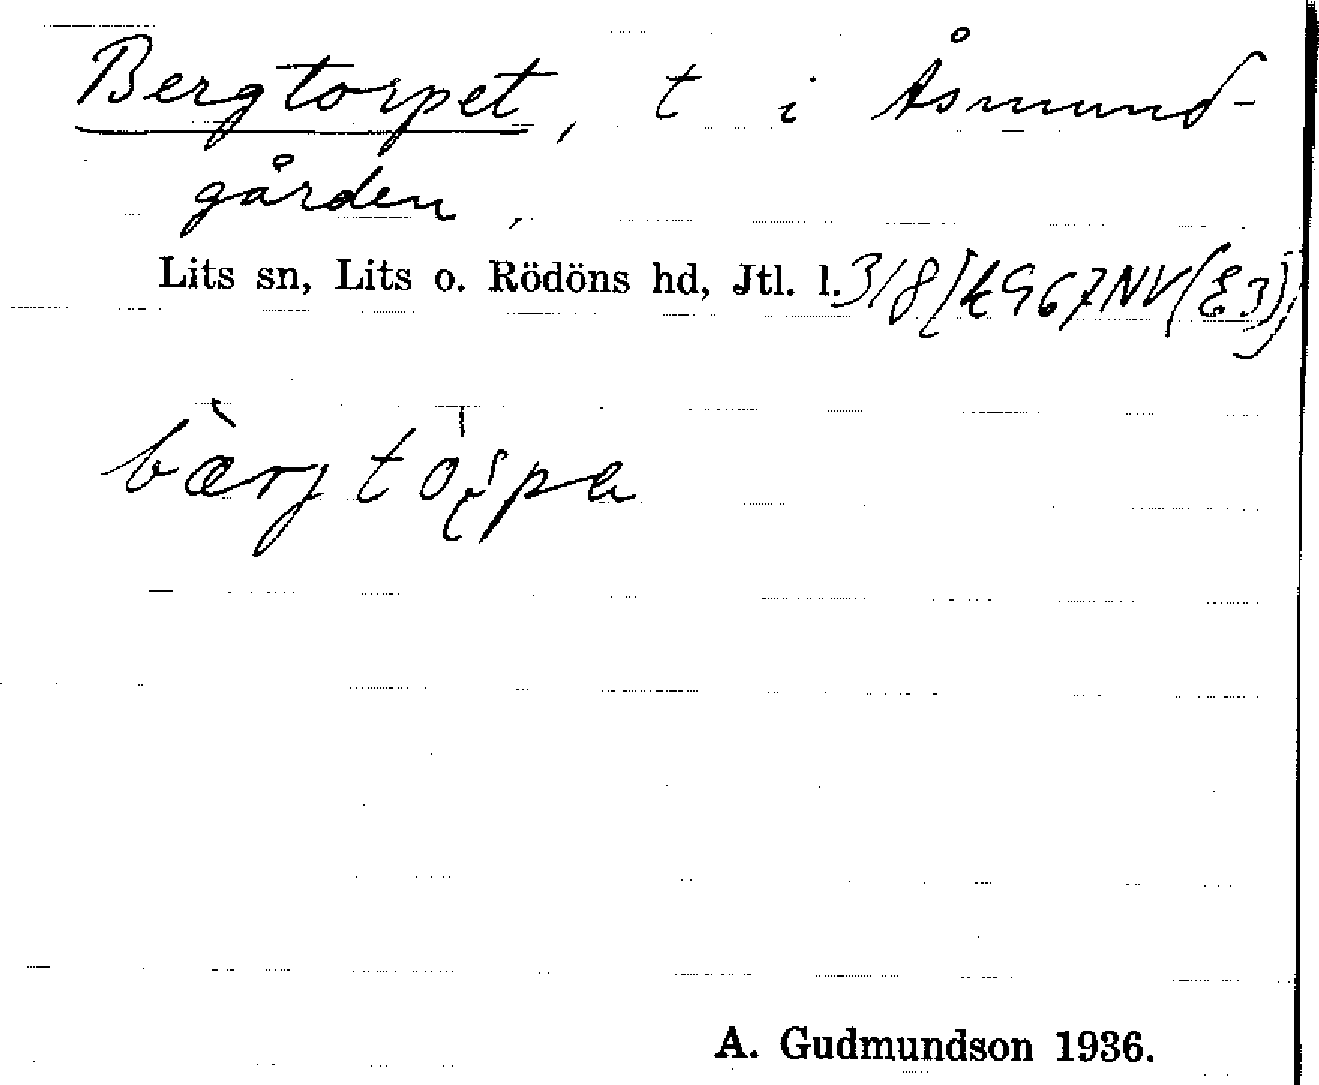 Bergtorpet, t i Åsmund-
gården,
Lits sn, Lits o. Rödöns hd, Jtl. l. 3/8 [k G67NV(E3)]
bærg torpa
A. Gudmundson 1936.